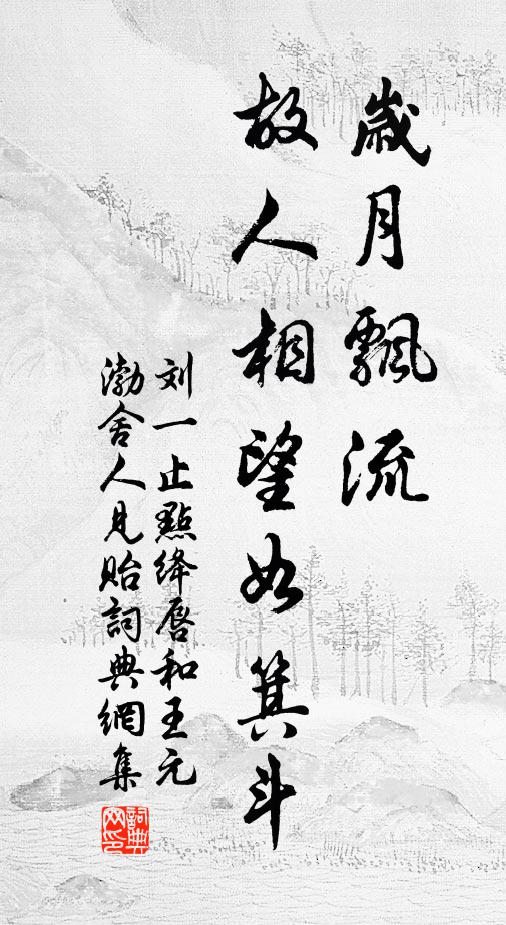 歲月飄流
故人相望如箕斗
刘一止點绛唇和王元
渤舍人見貽詞典網集
詞典
网印